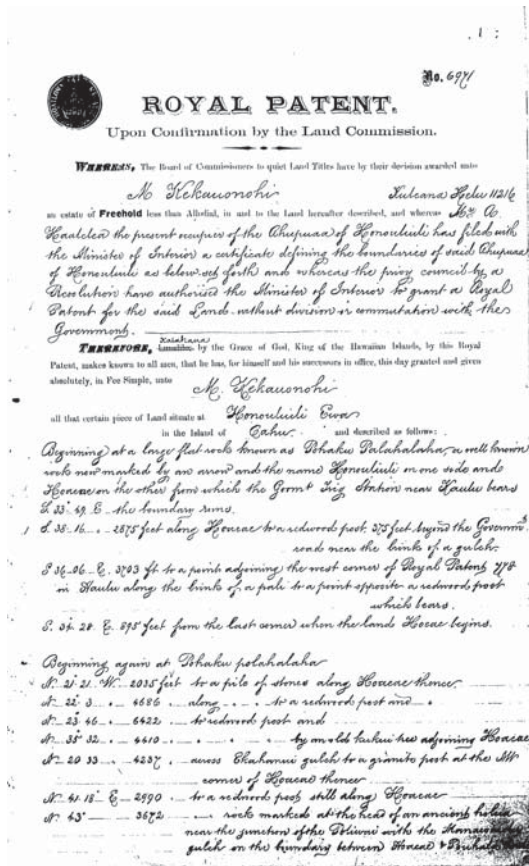 No. 6971
ROYAL PATENT.
Upon Confirmation by the Land Commission.
WHEREAS, The Board of Commissioners to quiet Land Titles have by their decision awarded unto
M Kekauonohi Kuleana Helu 11216
an estate of Freehold less than Allodial, in and to the Land hereafter described, and whereas Mr A.
Haalelea the present occupier of the Ahupuaa of Honouliuli has filed with
the Minister of Interior a certificate defining the boundaries of said Ahupuaa
of Honouliuli as below set forth and whereas the privy council by a
Resolution have authorised the Minister of Interior to grant a Royal
Patent for the said Land without division or commutation with the
Government.
Kalakaua
THEREFORE, by the Grace of God, King of the Hawaiian Islands, by this Royal
Patent, makes known to all men, that he has, for himself and his successors in office, this day granted and given
absolutely, in Fee Simple, unto
M. Kekauonohi
all that certain piece of Land situate at Honouliuli Ewa
in the Island of Oahu and described as follows:
Beginning at a large flat rock known as Pohaku Palahalaha, a well known
rock now marked by an arrow and the name Honouliuli on one side and
Hoaeae on the other from which the Govmt Trig Station near Kaulu bears
S. 33. 49. E - the boundary runs.
S. 38. 16 2875 feet along Hoaeae to a redwood post. 375 feet beyond the Governmt
road near the brink of a gulch.
S 36-06 E. 3703 ft to a point adjoining the west corner of Royal Patent 778
in Kaulu along the brink of a pali to a point opposite a redwood post
which bears.
S. 34 28 E. 895 feet from the last corner when the land Hoeae begins.
Beginning again at Pohaku polahalaha
N. 21° 21. W. 2035 feet to a pile of stones along Hoaeae thence
N 22 3 4686 along to a redwood post and
N 23 46 6422 to redwood post and
N 35 32 4410 by an old kukui tree adjoining Hoaeae
N 20 33 4237 across Ekahanui gulch to a granite post at the NW
corner of Hoaeae thence
N 41 18 E 2990 to a redwood post still along Hoaeae
N 43 3672 rock marked at the head of an ancient
near the junction of the Poliwai with the
gulch on the boundary between Hoaeae & Pouhala